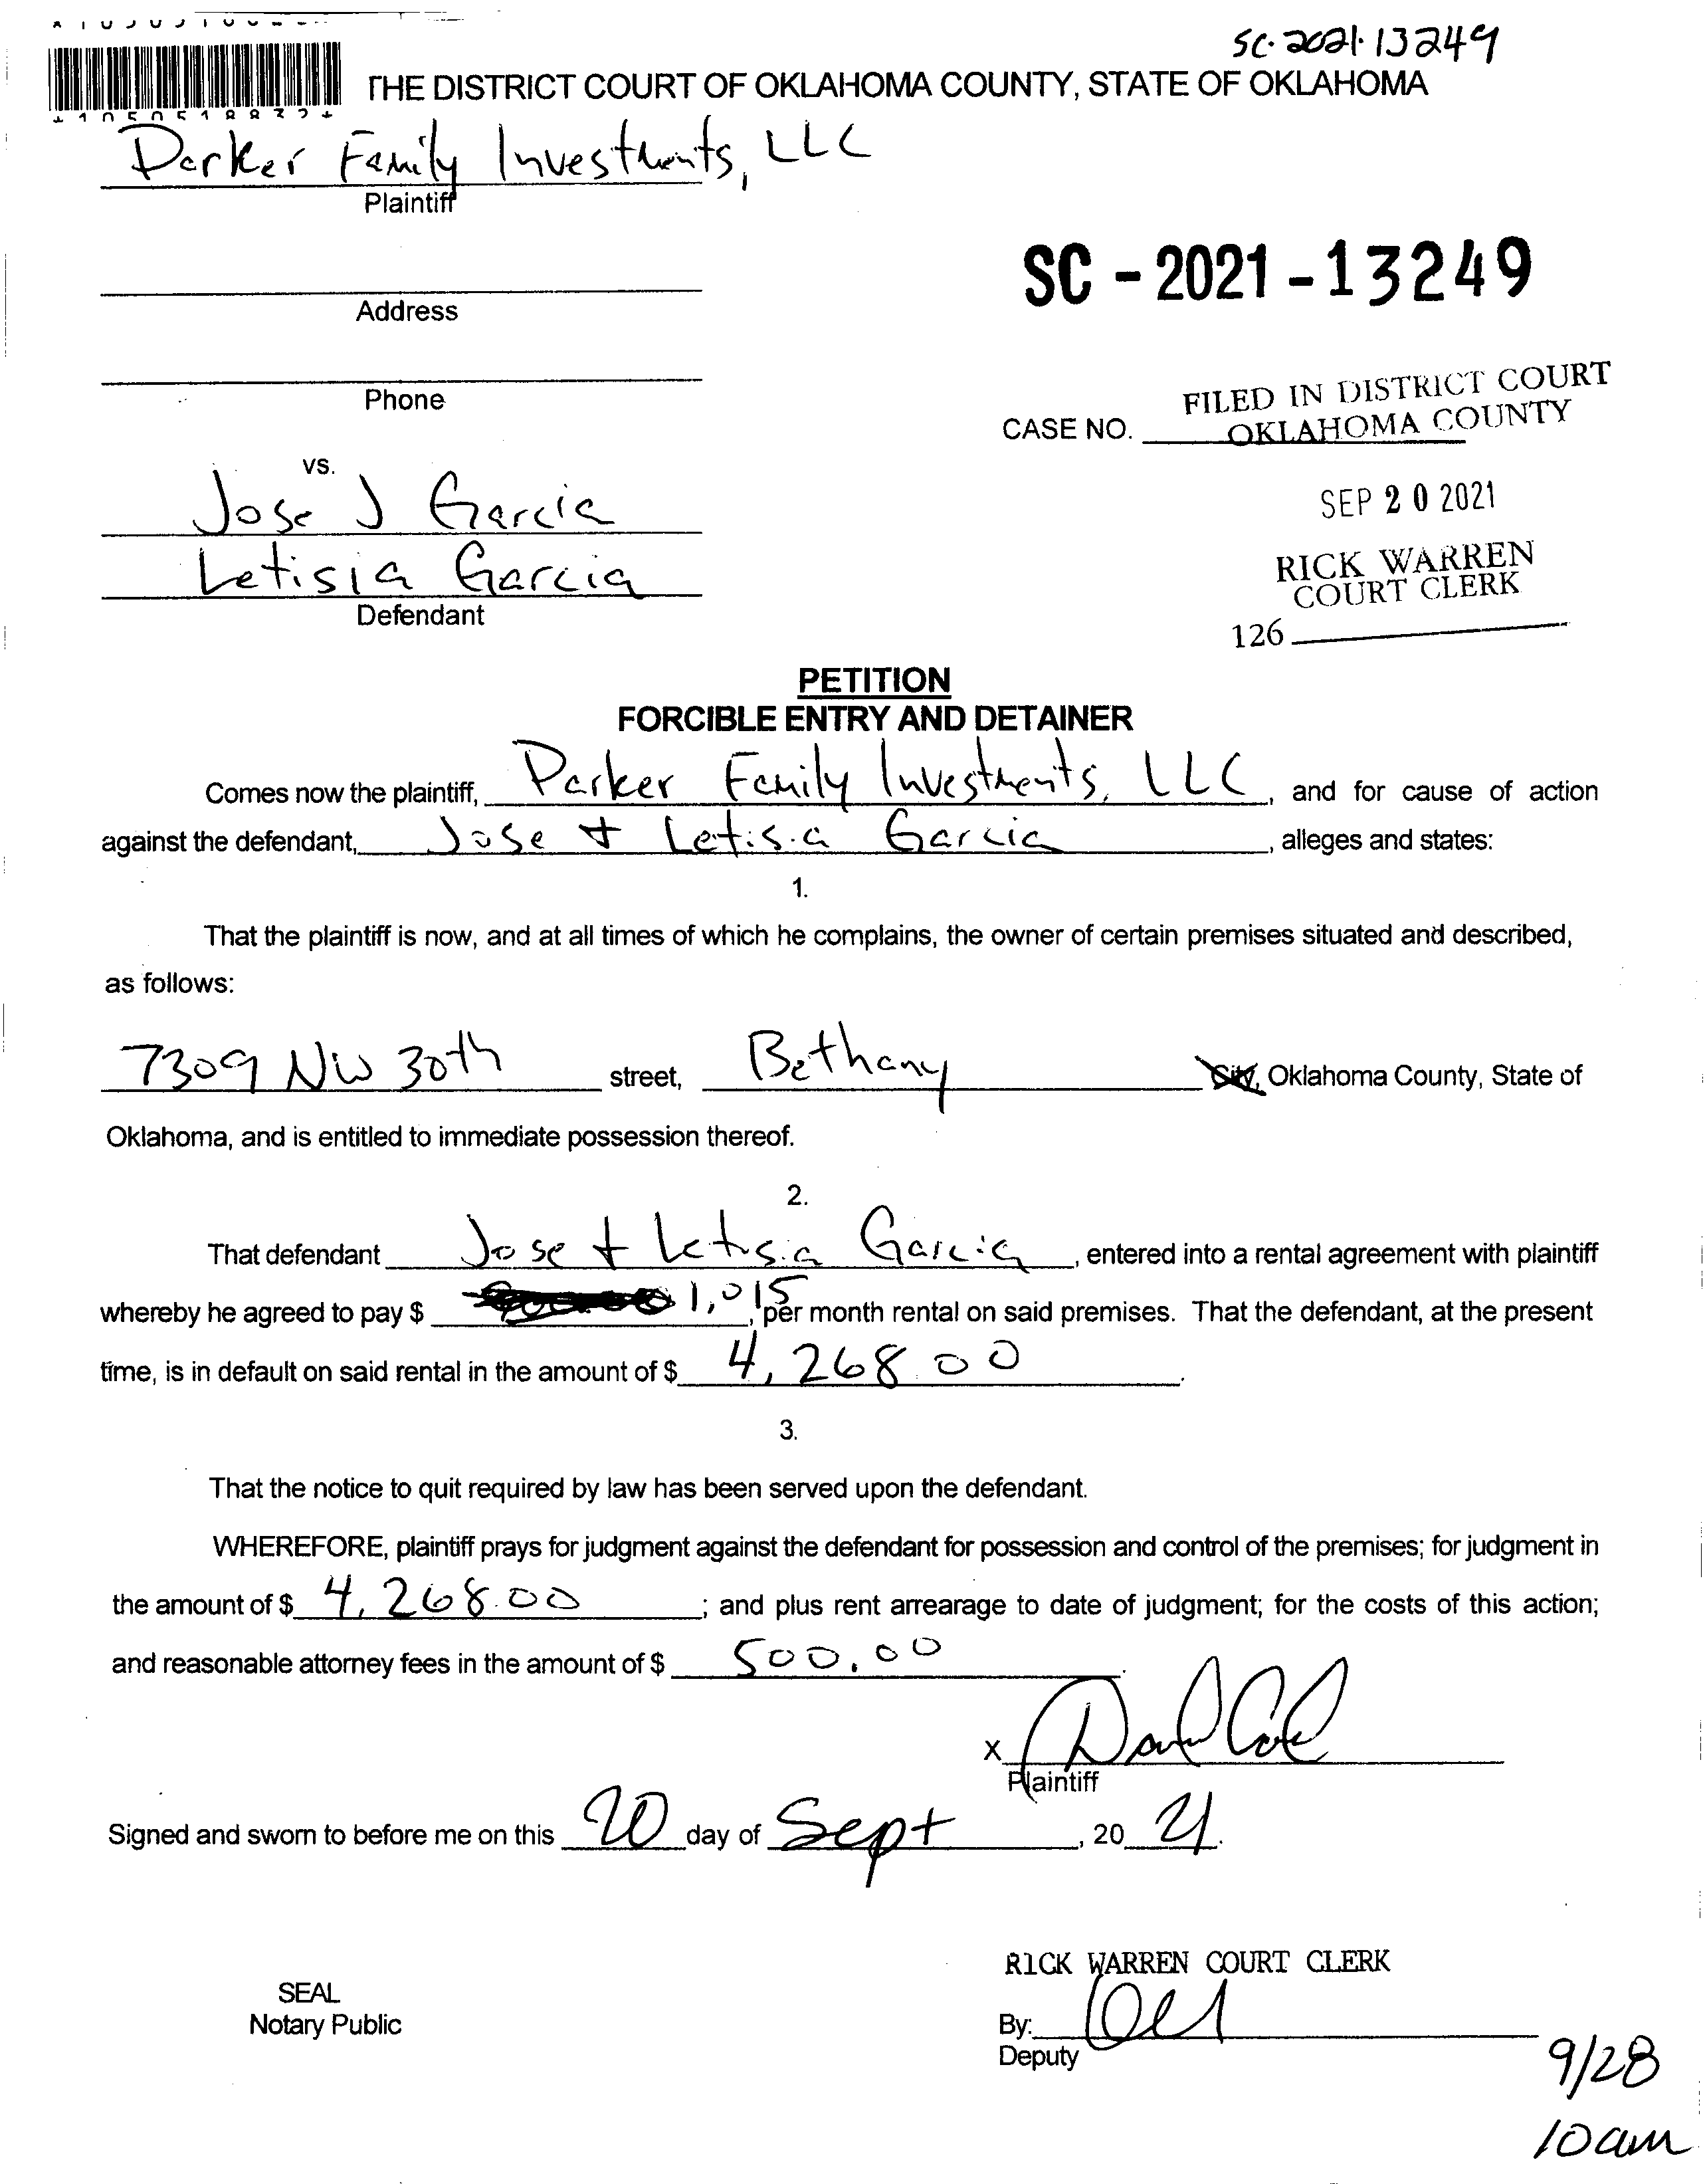 SC-2021-13249
THE DISTRICT COURT OF OKLAHOMA COUNTY, STATE OF OKLAHOMA
Parker Family Investments, LLC
Plaintiff
SC - 2021 - 13249
Address
Phone
FILED IN DISTRICT COURT
CASE NO. OKLAHOMA COUNTY
vs.
SEP 20 2021
Jose J Garcia
RICK WARREN
COURT CLERK
Letisia Garcia
Defendant
126
PETITION
FORCIBLE ENTRY AND DETAINER
Comes now the plaintiff, Parker Family Investments, LLC, and for cause of action
against the defendant, Jose + Letisia Garcia, alleges and states:
1.
That the plaintiff is now, and at all times of which he complains, the owner of certain premises situated and described,
as follows:
7309 NW 30th street, Bethany City, Oklahoma County, State of
Oklahoma, and is entitled to immediate possession thereof.
2.
That defendant Jose + Letisia Garcia, entered into a rental agreement with plaintiff
whereby he agreed to pay $ 1,015, per month rental on said premises. That the defendant, at the present
time, is in default on said rental in the amount of $ 4,268.00.
3.
That the notice to quit required by law has been served upon the defendant.
WHEREFORE, plaintiff prays for judgment against the defendant for possession and control of the premises; for judgment in
the amount of $ 4,268.00; and plus rent arrearage to date of judgment; for the costs of this action;
and reasonable attorney fees in the amount of $ 500.00.
X
Plaintiff
Signed and sworn to before me on this 20 day of Sept, 20 21.
RICK WARREN COURT CLERK
SEAL
Notary Public
By:
Deputy
9/28
10am